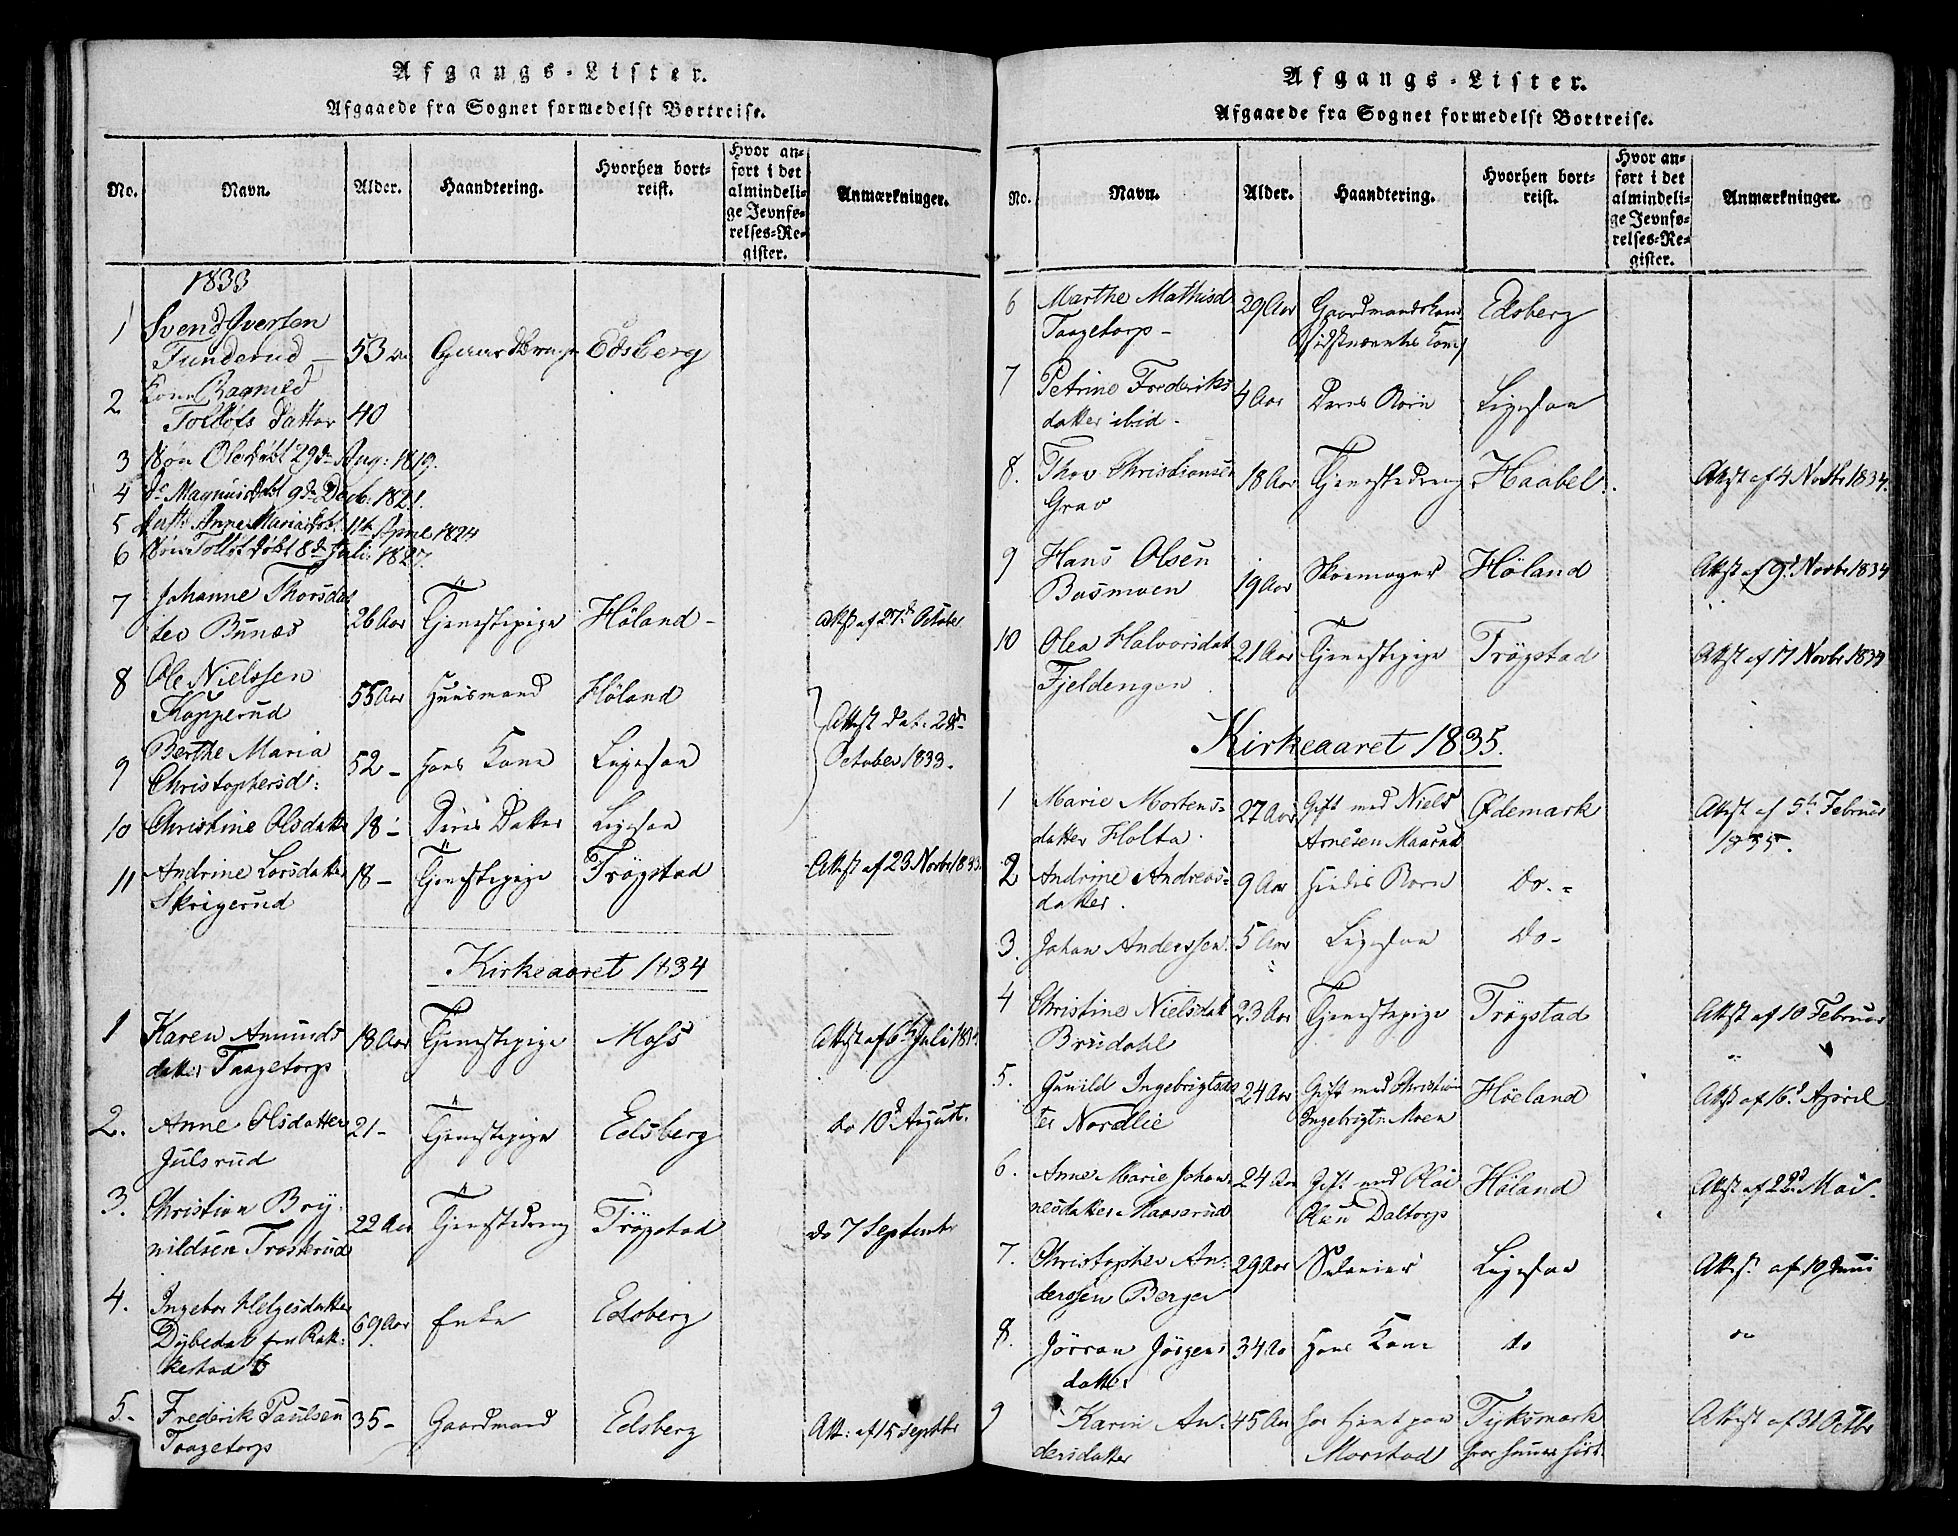 Afgangs-Lister.
Afgaaede fra Sognet formedelst Bortreise.
No. Navn. Alder. Haandtering. Hvorhen bortreist. Hvor anført i det almindelige Jevnførelses-Register. Anmærkninger.
1833
1 Svend Iversen
Tunderud — 53 Gaardbruger Edsberg
2 Kone Ragnild
Tollofs Datter 40
3 Søn Ole døbt 29de Aug: 1819.
4 do Magnus døbt 9de Decb: 1821.
5 Anne Maria døbt 11te April 1824
6 Søn Tollof døbt 8de Juli: 1827.
7 Johanne Thorsdat
ter Bunæs 26 Aar Tjenestepige Höland - Attest af 27de October
8 Ole Nielssen
Kopperud 55 Aar Huusmand Höland
Attest dat: 28de
October 1833.
9 Berthe Maria
Christophersd: 52 - Hans Kone Ligesaa
10 Christine Olsdatter 18 - Deres Datter Ligesaa
11 Andrine Larsdatter 18 - Tjenestepige Trögstad Attest af 23 Novbr 1833.
Skrigerud
Kirkeaaret 1834
1 Karen Amunds
datter Taagetorp 18 Aar Tjenestepige Moss Attest af 6te Juli 1834
2. Anne Olsdatter 21 - Tjenestepige Edsberg do 10de August.
Julsrud
3. Christian Bry-
nildsen Trosterud 22 Aar Tjenestedreng Trögstad do 7 Septembr
4. Ingebor Helgesdatter
Dybedal fra Rak-
kestad 69 Aar Enke Edsberg
5. Frederik Paulsen 35 - Gaardmand Edsberg Att: af 15 Septbr
Taagetorp
Afgangs-Lister.
Afgaaede fra Sognet formedelst Bortreise.
No. Navn. Alder. Haandtering. Hvorhen bortreist. Hvor anført i det almindelige Jevnførelses-Register. Anmærkninger.
6 Marthe Mathisd 29 Aar Gaardmandskone Edsberg
Taagetorp - sidstnævntes Kone
7 Petrine Frederiks
datter ibid - 4 Aar Deres Børn Ligesaa
8. Thor Christiansen 18 Aar Tjenestedreng Haabel. Attest af 4 Novbr 1834.
Grav
9 Hans Olsen
Busmoen 19 Aar Skoemager Höland Attest af 9de Novbr 1834
10 Olea Halvorsdat 21 Aar Tjenestepige Trögstad Attest af 17 Novbr 1834
Fjeldengen
Kirkeaaret 1835.
1 Marie Mortens-
datter Holta. 27 Aar Gift med Niels
Arnesen Maarud Ødemark Attest af 5te Februar
1835.
2 Andrine Andreas-
datter. 9 Aar Hendes Børn Do. -
3. Johan Anderssen 5 Aar Ligesaa Do -
4 Christine Nielsdat 23 Aar Tjenestepige Trögstad Attest af 10 Februar
Brudahl
5. Gunild Ingebrigtsdat
ter Nordlie 24 Aar Gift med Christian
Ingebrigts. Moen Höeland Attest af 16de April
6. Anne Marie Johan
nesdatter Maaserud 24 Aar Gift med
Olsen Daltorp Höland Attest af 22de Mai.
7. Christopher An-
derssen Berger 29 Aar Ligesaa Attest af 19 Juni
8. Jörran Jörgens
datter 34 Aar Hans Kone do do
9 Karin An-
dersdatter 45 Aar har tjent paa
Morstad Tyksmark Attest af 31 Octbr